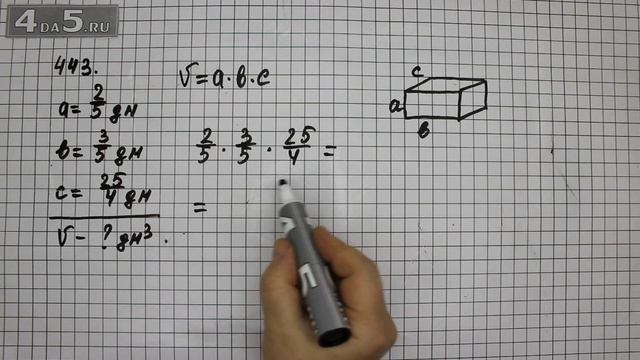 4ДА5.RU
443.
a = 2/5 дм
в = 3/5 дм
c = 25/4 дм
V - ? дм³.
V = a · в · c
2/5 · 3/5 · 25/4 =
=
c
a
в